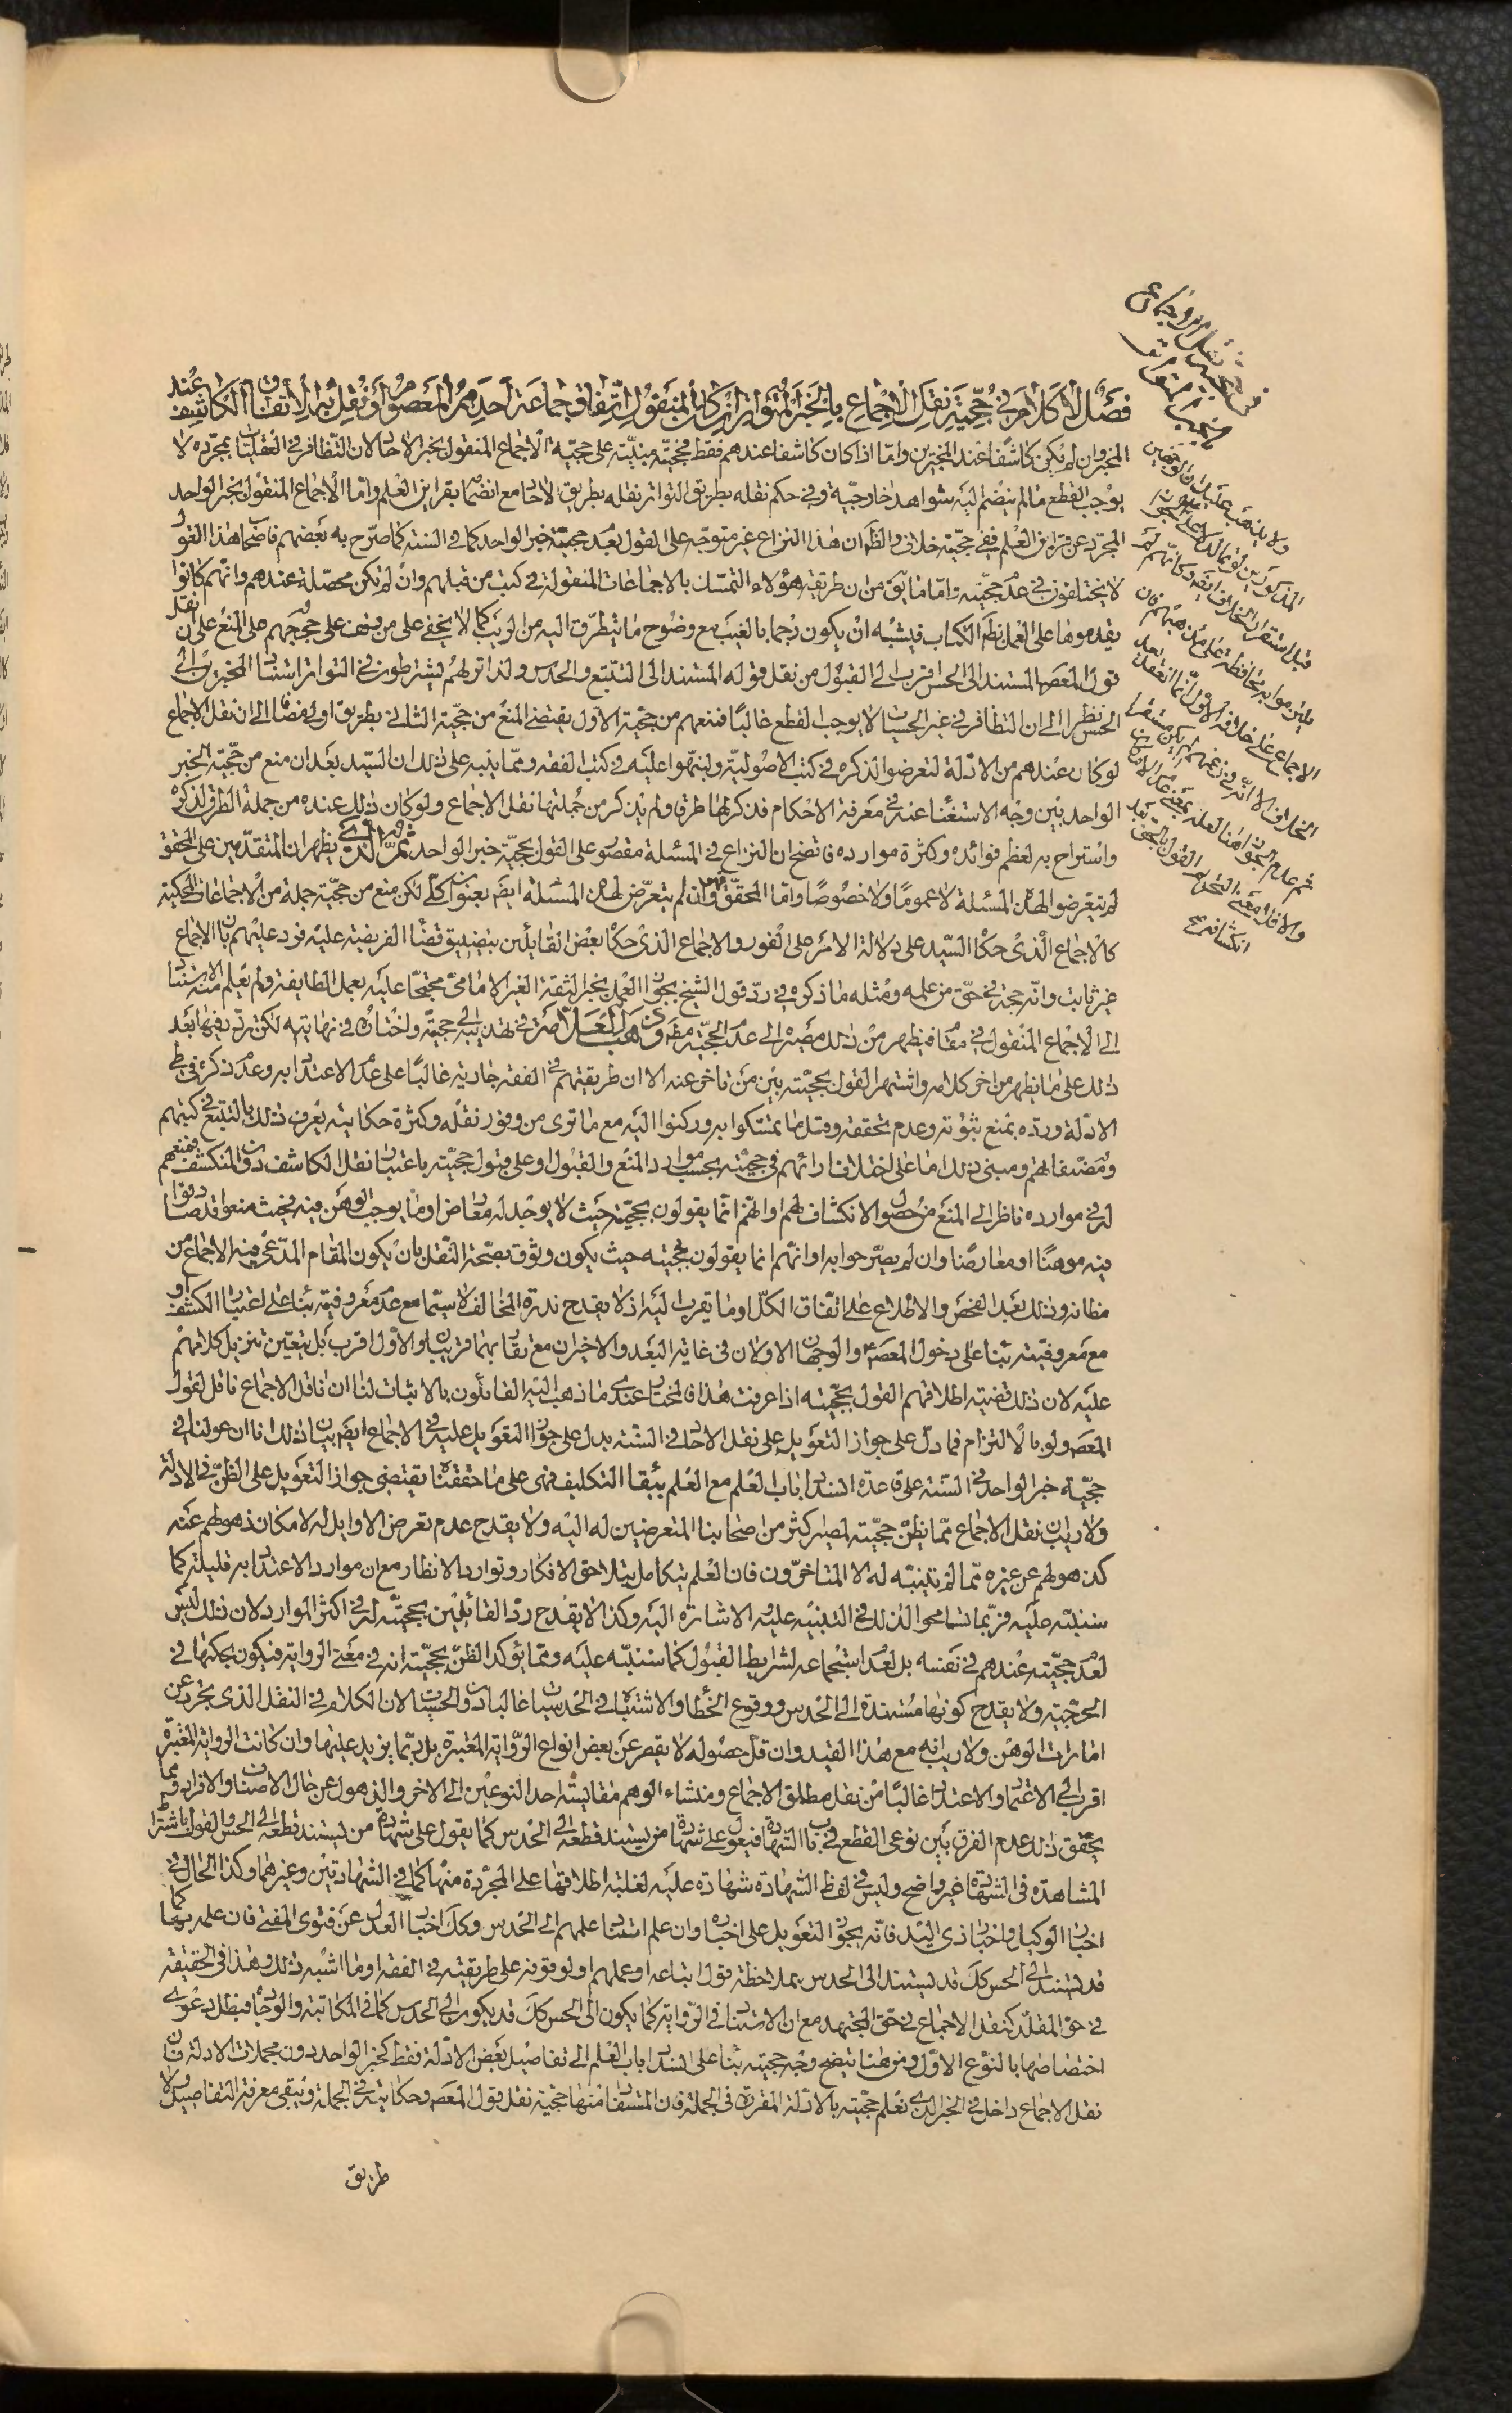 فصل لا كلام في حجية نقل الاجماع بالخبر المتواتر ان كان المنقول اتفاق جماعة احدهم المعصوم او نقل الاتفاق الكاشف عند
المخبر وان لم يكن كاشفا عند المخبرين واما اذا كان كاشفا عندهم فقط فحجيته مبنية على حجية الاجماع المنقول بخبر الاحاد لان التظافر في العقليات بمجرده لا
يوجب القطع ما لم ينضم اليه شواهد خارجية وفي حكم نقله بطريق التواتر نقله بطريق الاحاد مع انضمام قراين العلم واما الاجماع المنقول بخبر الواحد
المجرد عن قراين العلم ففي حجيته خلاف والظ ان هذا النزاع غير متوجه على القول بعدم حجية خبر الواحد كما في السنة كما صرح به بعضهم فاصحاب هذا القول
لا يختلفون في عدم حجيته واما ما يق من ان طريقة هؤلاء التمسك بالاجماعات المنقولة في كتب من قبلهم وان لم تكن محصلة عندهم وانهم كانوا
يقدموها على العمل بظم الكتاب فيشبه ان يكون رجما بالغيب مع وضوح ما يتطرق اليه من الريب كما لا يخفى على من وقف على حججهم على المنع على ان نقل
قول المعصوم المستند الى الحس اقرب الى القبول من نقل قوله المستند الى التتبع والحدس ولذا تراهم يشترطون في التواتر استناد المخبرين الى
الحس نظرا الى ان التظافر في غير الحسيات لا يوجب القطع غالبا فمنعهم من حجية الاول يقتضي المنع من حجية الثاني بطريق اولى مضافا الى ان نقل الاجماع
لو كان عندهم من الادلة لتعرضوا لذكره في كتب الاصولية ولنبهوا عليه في كتب الفقه ومما ينبه على ذلك ان السيد بعد ان منع من حجية الخبر
الواحد بين وجه الاستغناء عنه في معرفة الاحكام فذكر لها طرقا ولم يذكر من جملتها نقل الاجماع ولو كان ذلك عنده من جملة الطرق لذكره
واستراح به لعظم فوائده وكثرة موارده فاتضح ان النزاع في المسئلة مقصور على القول بحجية خبر الواحد ثم الذي يظهر ان المتقدمين على المحقق
لم يتعرضوا لهذه المسئلة لا عموما ولا خصوصا واما المحقق فهو وان لم يتعرض لهذه المسئلة ايضا بعنوان كلي لكن منع من حجية جملة من الاجماعات المحكية
كالاجماع الذي حكاه السيد على دلالة الامر على الفور والاجماع الذي حكاه بعض القائلين بتضييق قضاء الفريضة عليه فرد عليهم بان الاجماع
غير ثابت وانه حجة في حق من علمه ومثله ما ذكره في رد قول الشيخ بجواز العمل بخبر الثقة الغير الامامي محتجا عليه بعمل الطايفة ولم يعلم منه الاستناد
الى الاجماع المنقول في مقام فيظهر من ذلك مصيره الى عدم الحجية مط وذهب العلامة في تهذيبه الى حجيته واختاره في نهايته لكن تردد فيها بعد
ذلك على ما يظهر من اخر كلامه واشتهر القول بحجيته بين من تاخر عنه الا ان طريقتهم في الفقه جارية غالبا على عدم الاعتداد به وعدم ذكره في طي
الادلة ورده بمنع ثبوته وعدم تحققه وقل ما تمسكوا به وركنوا اليه مع ما ترى من وفور نقله وكثرة حكايته يعرف ذلك بالتتبع في كتبهم
ومصنفاتهم ومبنى ذلك اما على اختلاف ارائهم في حجيته بحسب موارد المنع والقبول او على قبول حجيته باعتبار نقل الكاشف دون المنكشف فمنعهم
له في موارده ناظر الى المنع من حصول الانكشاف لهم او انهم انما يقولون بحجيته حيث لا يوجد له معارض او ما يوجب الوهن فيه فحيث منعوا قد صادفوا
فيه موهنا او معارضا وان لم يصرحوا به او انهم انما يقولون بحجيته حيث يكون وثوق بصحة النقل بان يكون المقام المدعى فيه الاجماع من
مظانه وذلك بعد الفحص والاطلاع على اتفاق الكل او ما يقرب اليه اذ لا يقدح ندرة المخالف لا سيما مع عدم معروفيته بناء على اعتبار الكشف او
مع معروفيته بناء على دخول المعصوم والوجهان الاولان في غاية البعد والاخيران مع تقاربهما قريبان والاول اقرب بل يتعين تنزيل كلامهم
عليه لان ذلك قضية اطلاقهم القول بحجيته اذا عرفت هذا فالمختار عندي ما ذهب اليه القائلون بالاثبات لنا ان ناقل الاجماع ناقل لقول
المعصوم ولو بالالتزام فما دل على جواز التعويل على نقل الاحاد في السنة يدل على جواز التعويل عليه في الاجماع ايضا بيان ذلك انا ان عولنا في
حجية خبر الواحد في السنة على قاعدة انسداد باب العلم مع العلم ببقاء التكليف فهي على ما حققناه يقتضي جواز التعويل على الظن في الادلة
ولا ريب ان نقل الاجماع مما يظن حجيته لمصير كثير من اصحابنا المتعرضين له اليه ولا يقدح عدم تعرض الاوايل له لامكان ذهولهم عنه
كذهولهم عن غيره مما لم يتنبه له الا المتاخرون فان العلم يتكامل بتلاحق الافكار وتوارد الانظار مع ان موارد الاعتداد به قليلة كما
سننبه عليه فربما تسامحوا لذلك في التنبيه عليه والاشارة اليه وكذا لا يقدح رد القائلين بحجيته له في اكثر الموارد لان ذلك ليس
لعدم حجيته عندهم في نفسه بل لعدم استجماعه لشرايط القبول كما سننبه عليه ومما يؤكد الظن بحجيته انه في معنى الرواية فيكون بحكمها في
الحجية ولا يقدح كونها مستندة الى الحدس ووقوع الخطاء والاشتباه في الحدسيات غالبا دون الحسيات لان الكلام في النقل الذي يتجرد عن
امارات الوهن ولا ريب انه مع هذا القيد وان قل حصوله لا يقصر عن بعض انواع الرواية المعتبرة بل ربما يزيد عليها وان كانت الرواية المعتبرة
اقرب الى الاعتماد والاعتداد غالبا من نقل مطلق الاجماع ومنشاء الوهم مقايسة احد النوعين الى الاخر والذهول عن حال الاصناف والافراد ومما
يحقق ذلك عدم الفرق بين نوعي القطع في باب الشهادة فيعول على شهادة من يستند قطعه الى الحدس كما يعول على شهادة من يستند قطعه الى الحس والقول باشتراط
المشاهدة في الشهادة غير واضح وليس في لفظ الشهادة شهادة عليه لغلبة اطلاقها على المجردة منها كما في الشهادتين وغيرهما وكذا الحال في
اخبار الوكيل واخبار ذي اليد فانه يجوز التعويل على اخباره وان علم استناد علمهم الى الحدس وكك اخبار العدل عن فتوى المفتي فان علمه بها كما
قد يستند الى الحس كك قد يستند الى الحدس بملاحظة قول اتباعه او عملهم او لوقوفه على طريقته في الفقه او ما اشبه ذلك وهذا في الحقيقة
في حق المقلد كنقل الاجماع في حق المجتهد مع ان الاستناد في الرواية كما يكون الى الحس كك قد يكون الى الحدس كما في المكاتبة والوجادة فيبطل دعوى
اختصاصها بالنوع الاول ومن هنا يتضح وجه حجيته بناء على انسداد باب العلم الى تفاصيل بعض الادلة فقط كخبر الواحد دون مجملات الادلة فان
نقل الاجماع داخل في الخبر الذي نعلم حجيته بالادلة المقررة في الجملة فان المستفاد منها حجية نقل قول المعصوم وحكايته في الجملة ويبقى معرفة التفاصيل ولا
طريق
ولا يذهب عليك ان الوجهين
المذكورين
قبل استقرار الخلاف ايضا وكانهم لم
الاجماع على خلافه الاول انما انعقد بعد
الخلاف الا انه في زعمهم لم يكن مستقرا
انكشافه